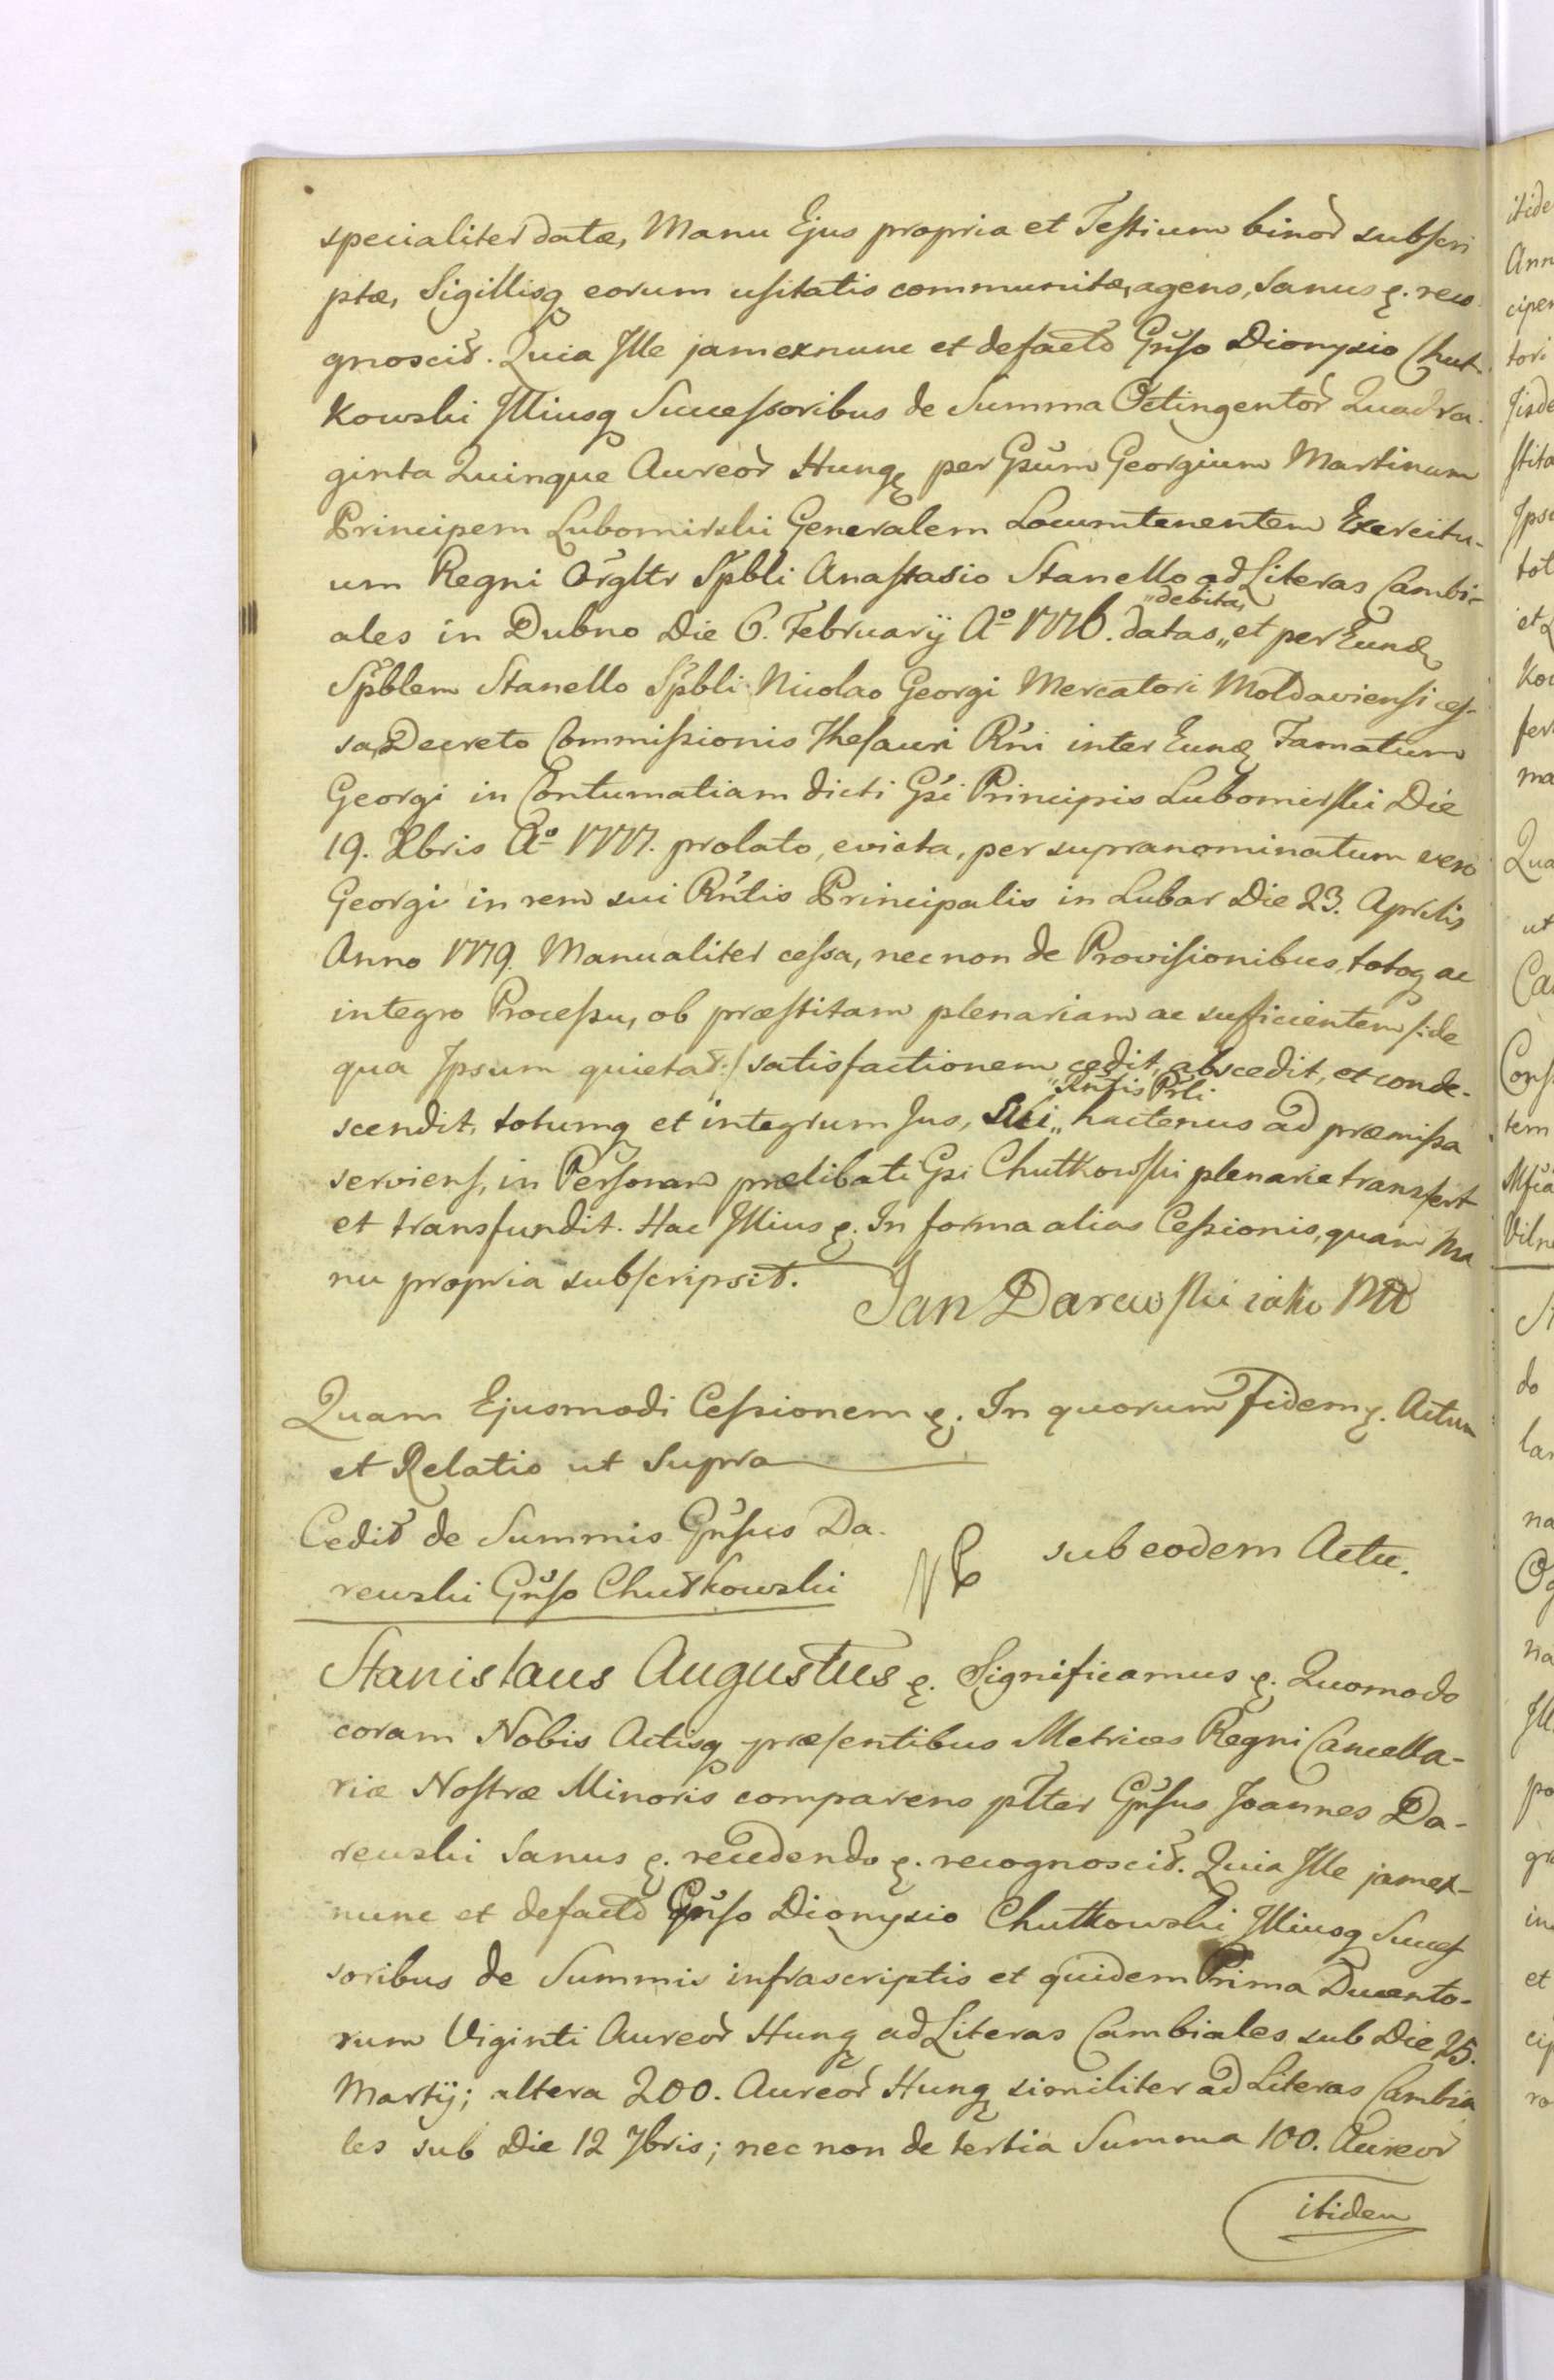 specialiter datæ, Manu Ejus propria et Testium binor subscri
ptæ, Sigillisq eorum usitatis communitæ, agens, Sanus ę. reco
gnoscit. Quia Ille jamexnunc et defacto Gnso Dionysio Chut-
kowski Illiusq Successoribus de Summa Octingentor Quadra-
ginta Quinque Aureor Hungę per Gsum Georgium Martinum
Principem Lubomirski Generalem Locumtenentem Exercitu-
um Regni Orgltr Spbli Anastasio Stanello ad Literas Cambi-
„debita„
ales in Dubno Die 6. February Aº 1776. datas„ et per Eundę
Spblem Stanello Spbli Nicolao Georgi Mercatori Moldaviensi ces-
sa, Decreto Commissionis Thesauri Rni inter Eundę Famatum
Georgi in Contumatiam dicti Gsi Principis Lubomirski Die
19. Xbris Aº 1777. prolato, evicta, per supranominatum vero
Georgi in rem sui Rntis Principalis in Lubar Die 23. Aprilis
Anno 1779. Manualiter cessa, necnon de Provisionibus, totoq ac
integro Processu, ob præstitam plenariam ac sufficientem /:de
qua Ipsum quietat:/ satisfactionem cedit, abscedit, et conde-
„Rntis Prli
scendit, totumq et integrum Jus, Sui„ hactenus ad præmissa
serviens, in Personam prælibati Gsi Chutkowski plenarie transfert
et transfundit. Hac Illius ę. In forma alias Cessionis, quam Ma
nu propria subscripsit.
Jan Darewski iako
Quam Ejusmodi Cessionem ę. In quorum fidem ę. Actum
et Relatio ut Supra
Cedit de Summis Gnsus Da-
rewski Gnso Chutkowski
sub eodem Actu.
Stanislaus Augustus ę. Significamus ę. Quomodo
coram Nobis Actisq præsentibus Metrices Regni Cancella-
riæ Nostræ Minoris comparens plter Gnsus Joannes Da-
rewski Sanus ę. recedendo ę. recognoscit. Quia Ille jamex-
nunc et defacto Gnso Dionysio Chutkowski Illiusq Succes
soribus de Summis infrascriptis et quidem Prima Ducento-
rum Viginti Aureor Hungę ad Literas Cambiales sub Die 25.
Martij; altera 200. Aureor Hungę similiter ad Literas Cambia
les sub Die 12 7bris; nec non de tertia Summa 100. Aureor
itidem